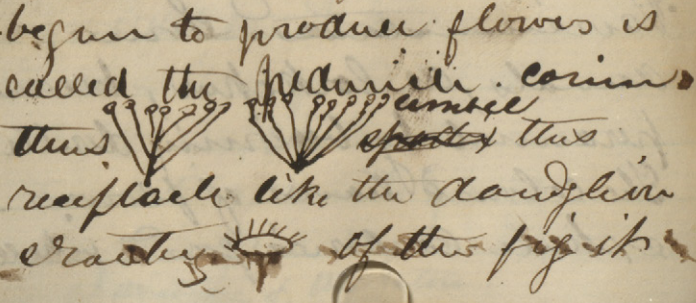 begun to produce flowers is
called the peduncle. corim
thus umbel spadix thus
receiptacle like the dandglion
of the fig it